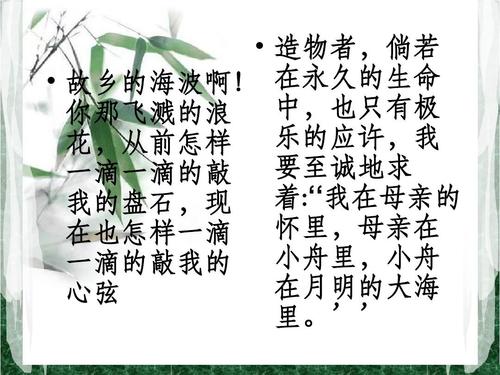 •故乡的海波啊！
你那飞溅的浪
花，从前怎样
一滴一滴的敲
我的盘石，现
在也怎样一滴
一滴的敲我的
心弦
•造物者，倘若
在永久的生命
中，也只有极
乐的应许，我
要至诚地求
着:“我在母亲的
怀里，母亲在
小舟里，小舟
在月明的大海
里。’’